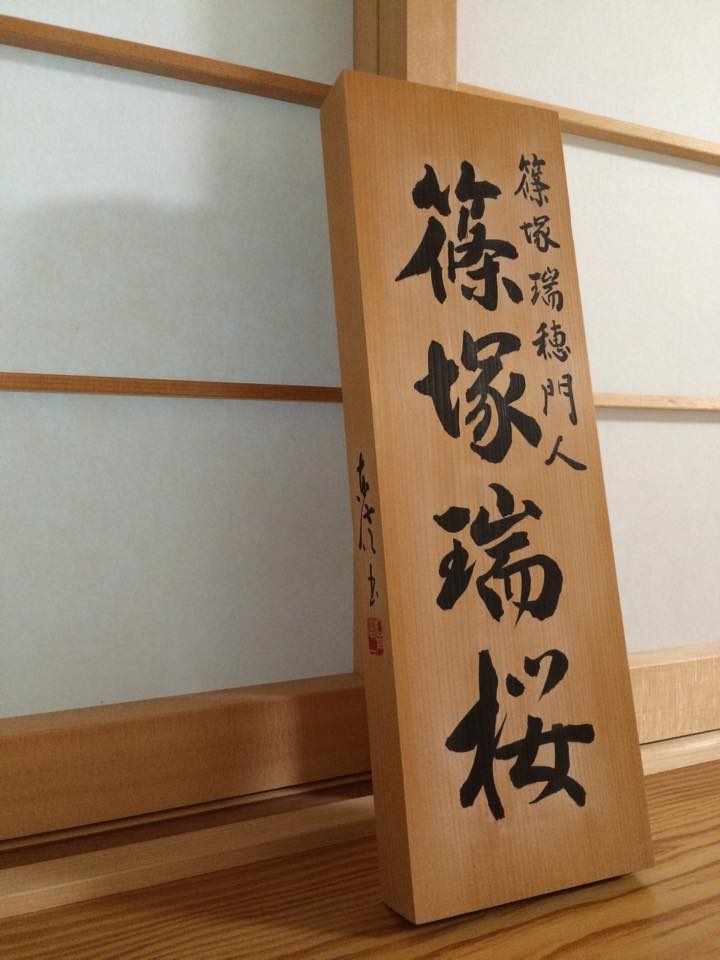 篠塚瑞穂門人
篠塚瑞桜